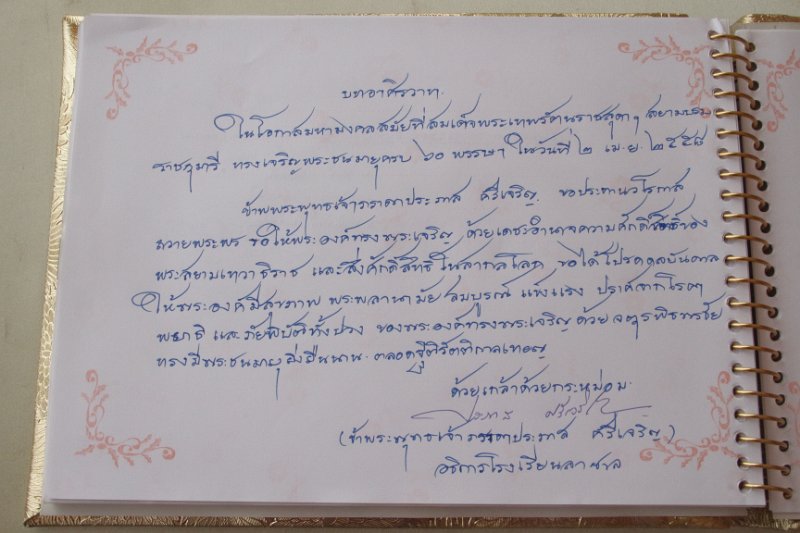 บทอาศิรวาท
ในโอกาสมหามงคลสมัยที่สมเด็จพระเทพรัตนราชสุดาฯ สยามบรม
ราชกุมารี ทรงเจริญพระชนมายุครบ ๖๐ พรรษา ในวันที่ ๒ เม.ย. ๒๕๕๘
ข้าพระพุทธเจ้า ประภาส ศรีเจริญ ขอประทานวโรกาส
ถวายพระพร ขอให้พระองค์ทรงพระเจริญ ด้วยเดชะอำนาจความศักดิ์สิทธิ์ของ
พระสยามเทวาธิราช และสิ่งศักดิ์สิทธิ์ในสากลโลก ขอได้โปรดดลบันดาล
ให้พระองค์มีสุขภาพ พระพลานามัยสมบูรณ์ แข็งแรง ปราศจากโรคา
พยาธิ และภัยพิบัติทั้งปวง ขอพระองค์ทรงพระเจริญด้วยจตุรพิธพรชัย
ทรงมีพระชนมายุยิ่งยืนนาน ตลอดจิรัฐิติกาลเทอญ
ด้วยเกล้าด้วยกระหม่อม
(ข้าพระพุทธเจ้า ประภาส ศรีเจริญ)
อธิการโรงเรียน